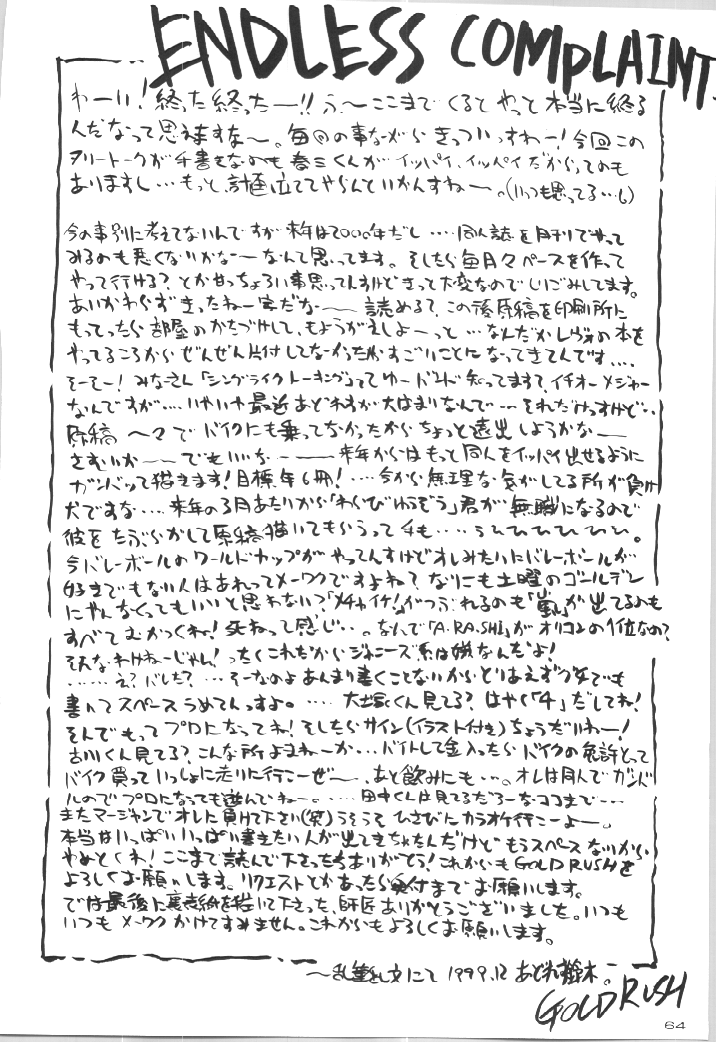 ENDLESS COMPLAINT
わーい!終った終ったー!!う、~ここまでくるとやっと本当に終る
んだなって思いますな~。毎回の事ながらきっついっすわー!今回この
フリートークが手書きなのも春三くんがイッパイ、イッパイだからってのも
ありますし…もっと計画立ててやらんといかんすねー。(いつも思ってる…し)
今の事別に考えてないんですが来年は2000年だし‥‥同人誌を月刊でやって
みるのも悪くないかなーなんて思ってます。そしたら毎月々ペースを作って
やって行ける?とかせっちょろい事思ってんすけどきって大変なのでしりごみしてます。
あいかわらずきったねー字だなー 読める?この後原稿を印刷所に
もってったら部屋のかたづけして、もようがえしよーっと…なんだかレヴォの本を
やってるころからぜんぜん片付してなかったからすごいことになってきてんです‥‥
そーそー!みなさん「シングライクトーキング」ってゆーバンド知ってます?イチオーメジャー
なんですが‥‥いやいや最近あどれすが大はまりなんで…それだけっすけど‥
原稿 へ々でバイクにも乗ってなかったからちょっと遠出しようかなー
さむいか――でもいいな―― 来年からはもっと同人をイッパイ出せるように
ガンバって描きます!目標年6冊!‥‥今から無理な気がしてる所が負け
犬ですな‥‥来年の3月あたりから「わらびゆうぞう」君が無職になるので
彼をたぶらかして原稿描いてもらうって手も‥‥うひひひひひ。
今バレーボールのワールドカップがやってんすけどオレみたいにバレーボールが
好きでもない人はあれってメーワクですよね?なにも土曜のゴールデン
にやんなくってもいいと思わない?「メチャイケ!」がつぶれるのも「嵐」が出てるのも
すべてむかつくね!死ねって感じ‥。なんで「A.RA.SHI」がオリコンの1位なの?
そんなわけねーじゃん!ったくこれだからジャニーズ系は嫌なんだよ!
‥‥‥え?バレた?…そーなのよあんまり書くことないからとりあえず文でも
書いてスペースうめてんっすよ。‥‥大塚くん見てる?はやく「4」だしてね!
そんでもってプロになってね!そしたらサイン(イラスト付き)ちょうだいねー!
古川くん見てる?こんな所よまねーか…バイトして金入ったらバイクの免許とって
バイク買っていっしょに走りに行こーぜ~、あと飲みにも…。オレは同人でガンバ
ルのでプロになっても遊んでねー。‥‥田中くんは見てるだろーなココまで‥‥
またマージャンでオレに負けて下さい(笑)うそうそひさびにカラオケ行こーよー。
本当はいっぱいいっぱい書きたい人が出てきちゃたんだけどもうスペースないから
やめとくね!ここまで読んで下さった方ありがとう!これからもGOLD RUSHを
よろしくお願いします。リクエストとかあったら受付までお願いします。
では最後に裏表紙を描いて下さった、師匠ありがとうございました。いつも
いつもメーワクかけてすみません。これからもよろしくお願いします。
~乱筆乱文にて 1999.12 あどれす鈴木。
GOLD RUSH
64